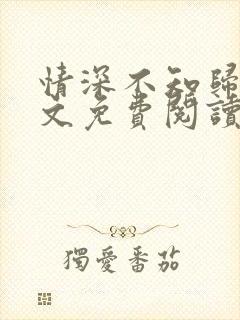 情深不知歸
文免費閱讀
獨愛番茄